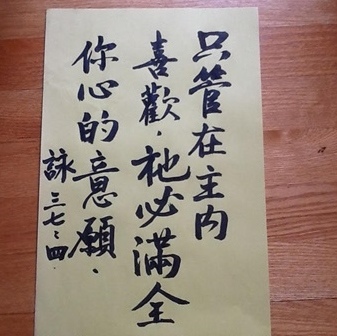 只管在主内
喜歡．祂必滿全
你心的意願．
詠三七：四．